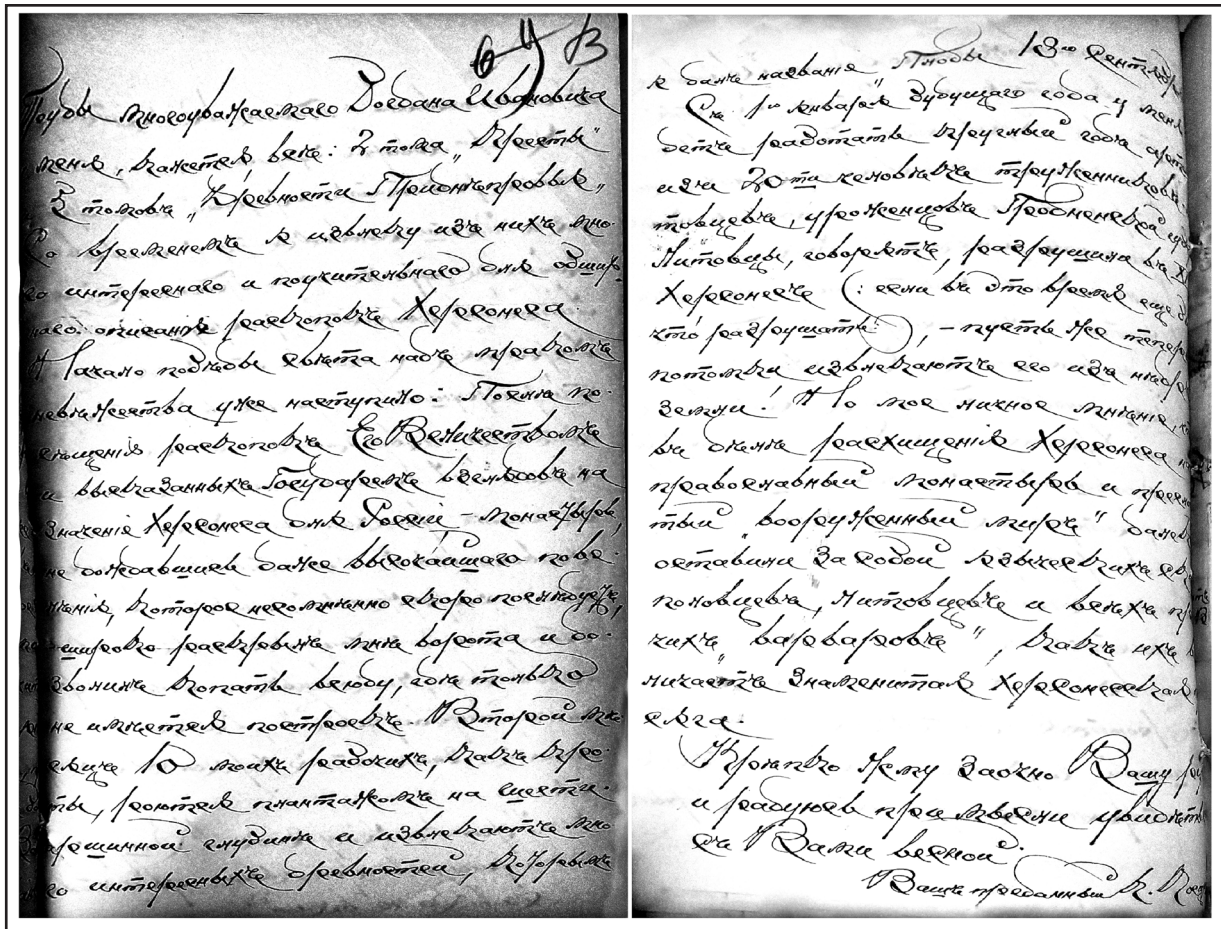 64 В
Труды многоуважаемаго Богдана Ивановича
меня, кажется, всѣ: 2 тома „Кресты"
3 томовъ „Древности Приднѣпровья"
Со временемъ я извлеку изъ нихъ мно-
го интереснаго и поучительнаго для обшир-
наго описанія раскоповъ Херсонеса.
Начало побѣды свѣта надъ мракомъ
невѣжества уже наступило: Послѣ по-
сѣщенія раскоповъ Его Величествомъ
и высказанныхъ Государемъ взглядовъ на
значеніе Херсонеса для Россіи – монастырь,
не дождавшись даже высочайшаго пове-
лѣнія, которое несомнѣнно скоро послѣдуетъ,
широко раскрылъ мнѣ ворота и до-
зволилъ копать всюду, гдѣ только
не имѣется построекъ. Второй мѣ-
сяцъ 10 моихъ рабочихъ, какъ кро-
ты, роются плантажомъ на шести-
аршинной глубинѣ и извлекаютъ мно-
го интересныхъ древностей, которымъ
13го Сентябр
я далъ названіе „Плоды
Съ 1го января будущаго года у меня
детъ работать круглый годъ арт
изъ 20ти человѣкъ тружениковъ
товцевъ, уроженцовъ Гродненской гу
Литовцы, говорятъ, разрушили въ X
Херсонесъ (: если въ это время еще б
что разрушать:), – пусть же тепер
потомки извлекаютъ его изъ нѣдр
земли! Но мое личное мнѣніе,
въ дѣлѣ расхищенія Херсонеса
православный монастырь и
тый „вооруженный миръ" далек
оставили за собой языческихъ
половцевъ, литовцевъ и всѣхъ пр
чихъ „варваровъ", какъ ихъ
личаетъ знаменитая Херсонесская
сяга.
Крѣпко жму заочно Вашу ру
и радуюсь при мысли увидѣт
ся съ Вами весной.
Вашъ преданный К. Кос